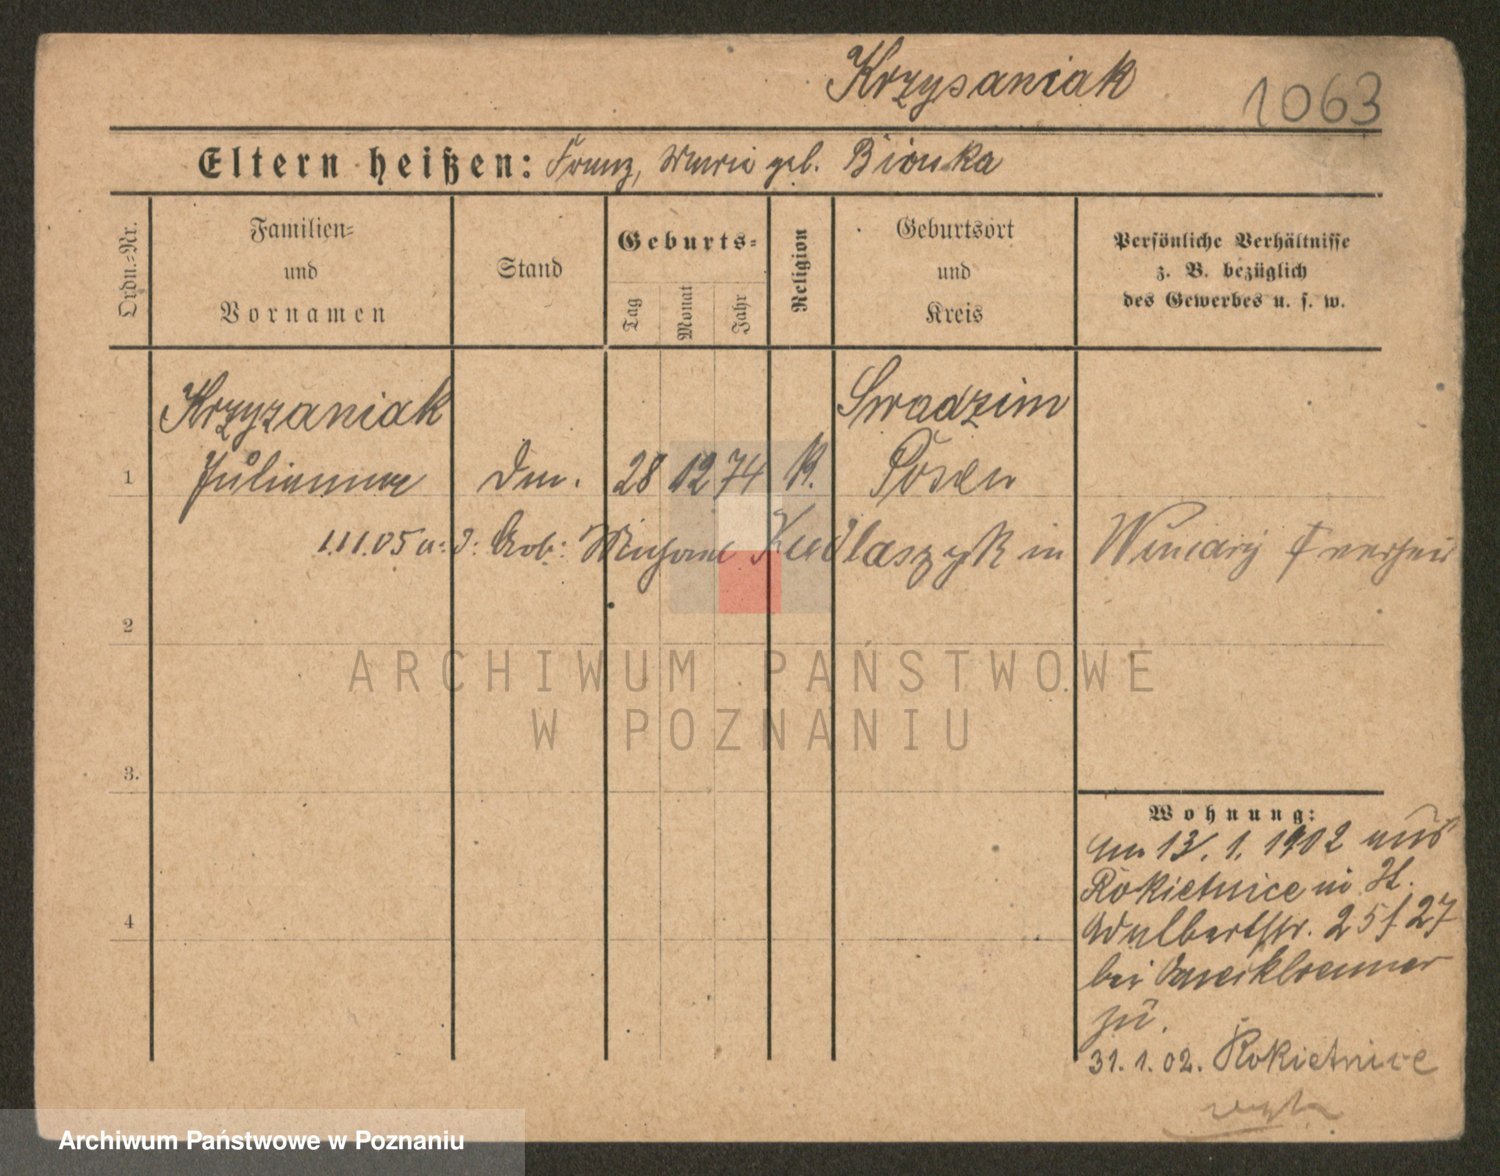 Krzysaniak 1063
Eltern heißen: Franz, Marie geb. Bionka
Ordn.=Nr.
Familien=
und
Vornamen
Stand
Geburts=
Tag
Monat
Jahr
Religion
Geburtsort
und
Kreis
Persönliche Verhältnisse
z. B. bezüglich
des Gewerbes u. s. w.
Krzyzaniak Swadzim
1 Julianna 28 12 74 K. Posen
1.11.05 Arb: in Winiary
2
3.
4
Wohnung:
am 13.1.1902 aus
Rokietnice in H.
Adalbertstr. 25/27
bei
zu.
31.1.02. Rokietnice
ARCHIWUM PAŃSTWOWE
W POZNANIU
Archiwum Państwowe w Poznaniu